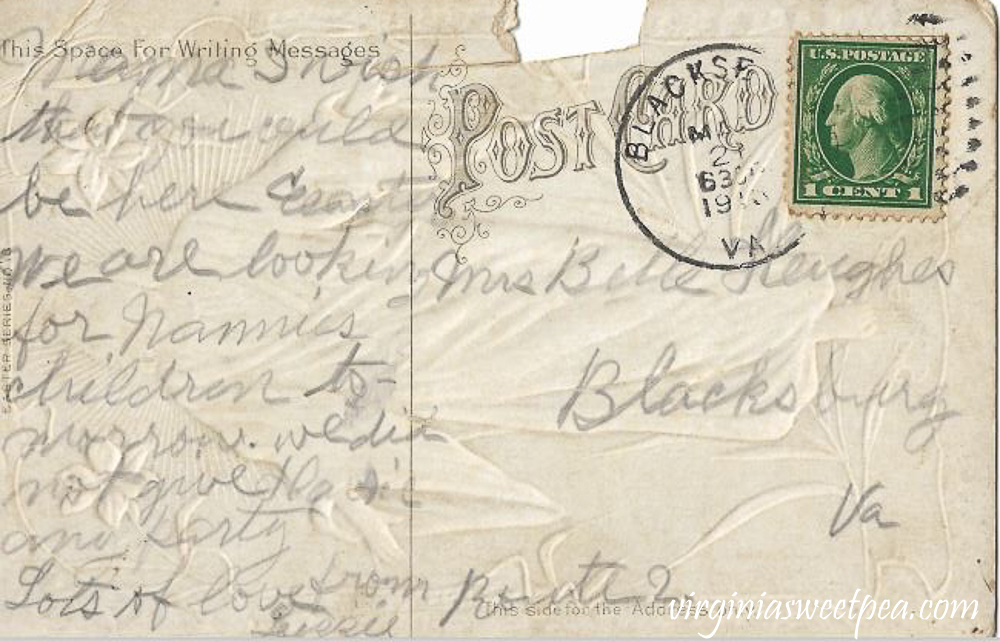 This Space For Writing Messages
Mama I wish
that you could
be here Easter
we are looking
for Nannies
children to-
morrow. we did
not give
any party
Lots of love from
POST CARD
BLACKSB
VA
U.S. POSTAGE
1 CENT 1
Mrs Bell Hughes
Blacksburg
Va
Route 2
This side for the Address
EASTER SERIES NO.
virginiasweetpea.com